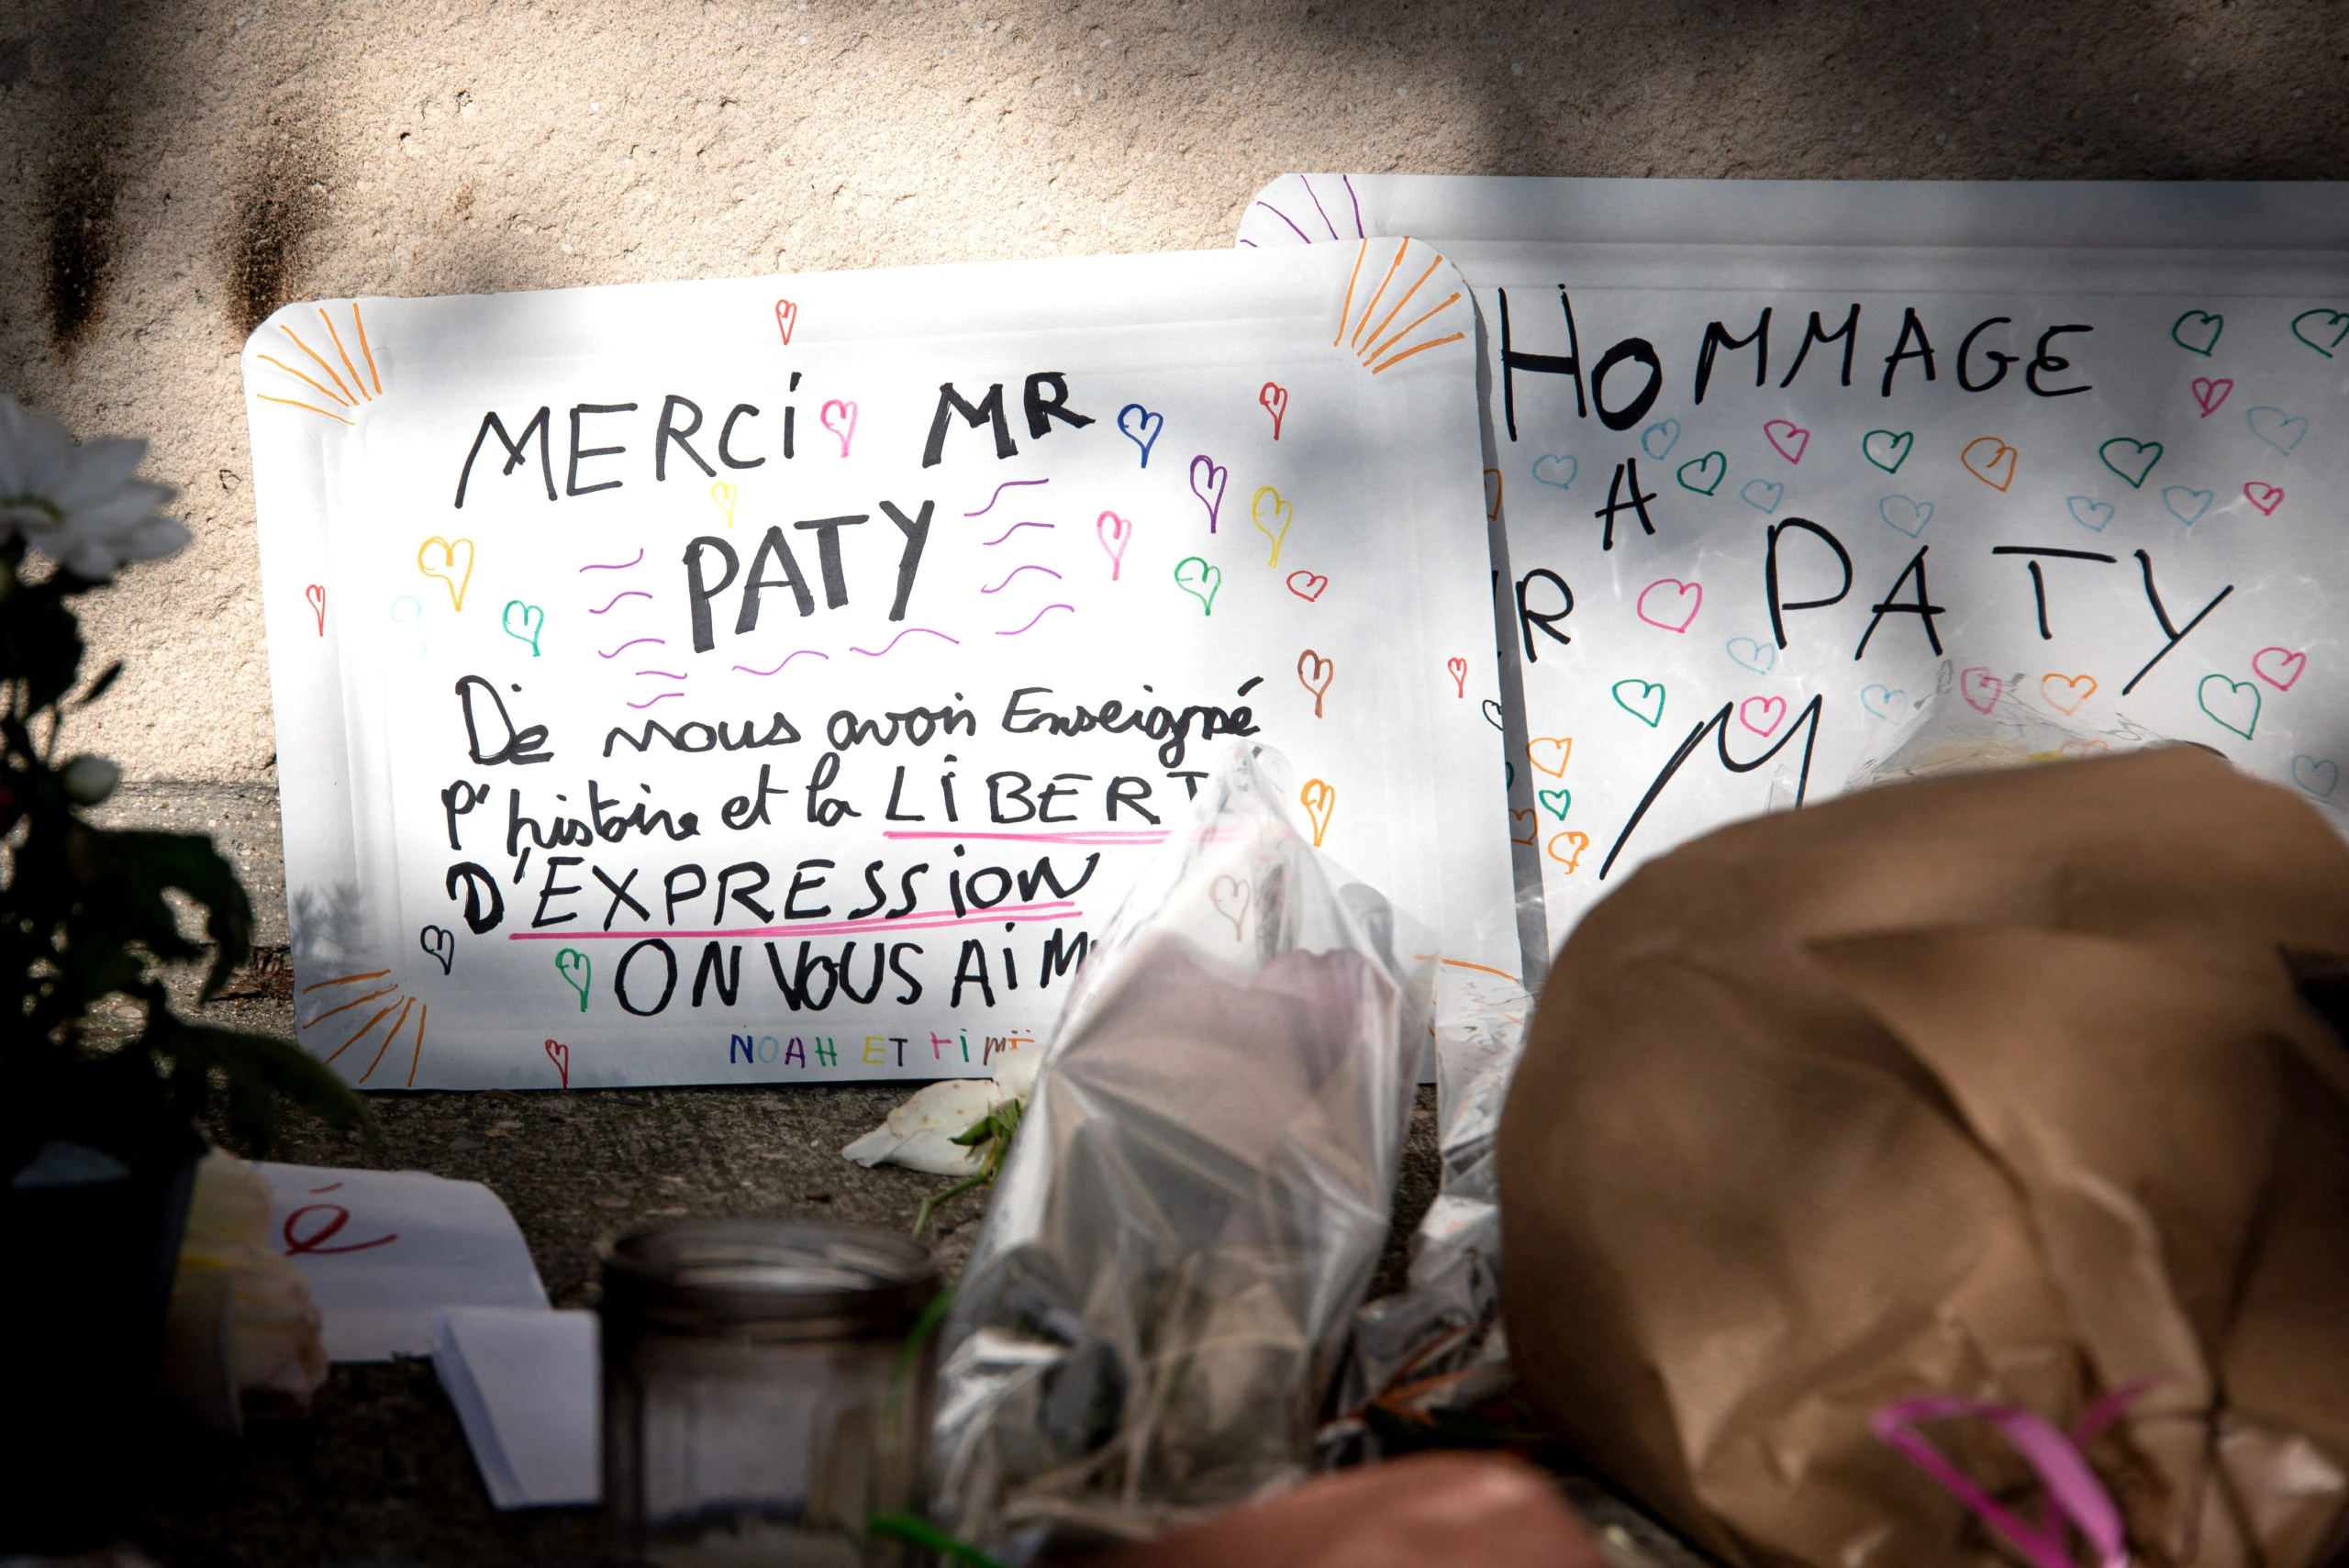 MERCi MR
PATY
De nous avoir Enseigné
l'histoire et la LiBERT
D'EXPRESSiON
ON VOUS AiM
NOAH ET
HOMMAGE
A
R PATY
M
é